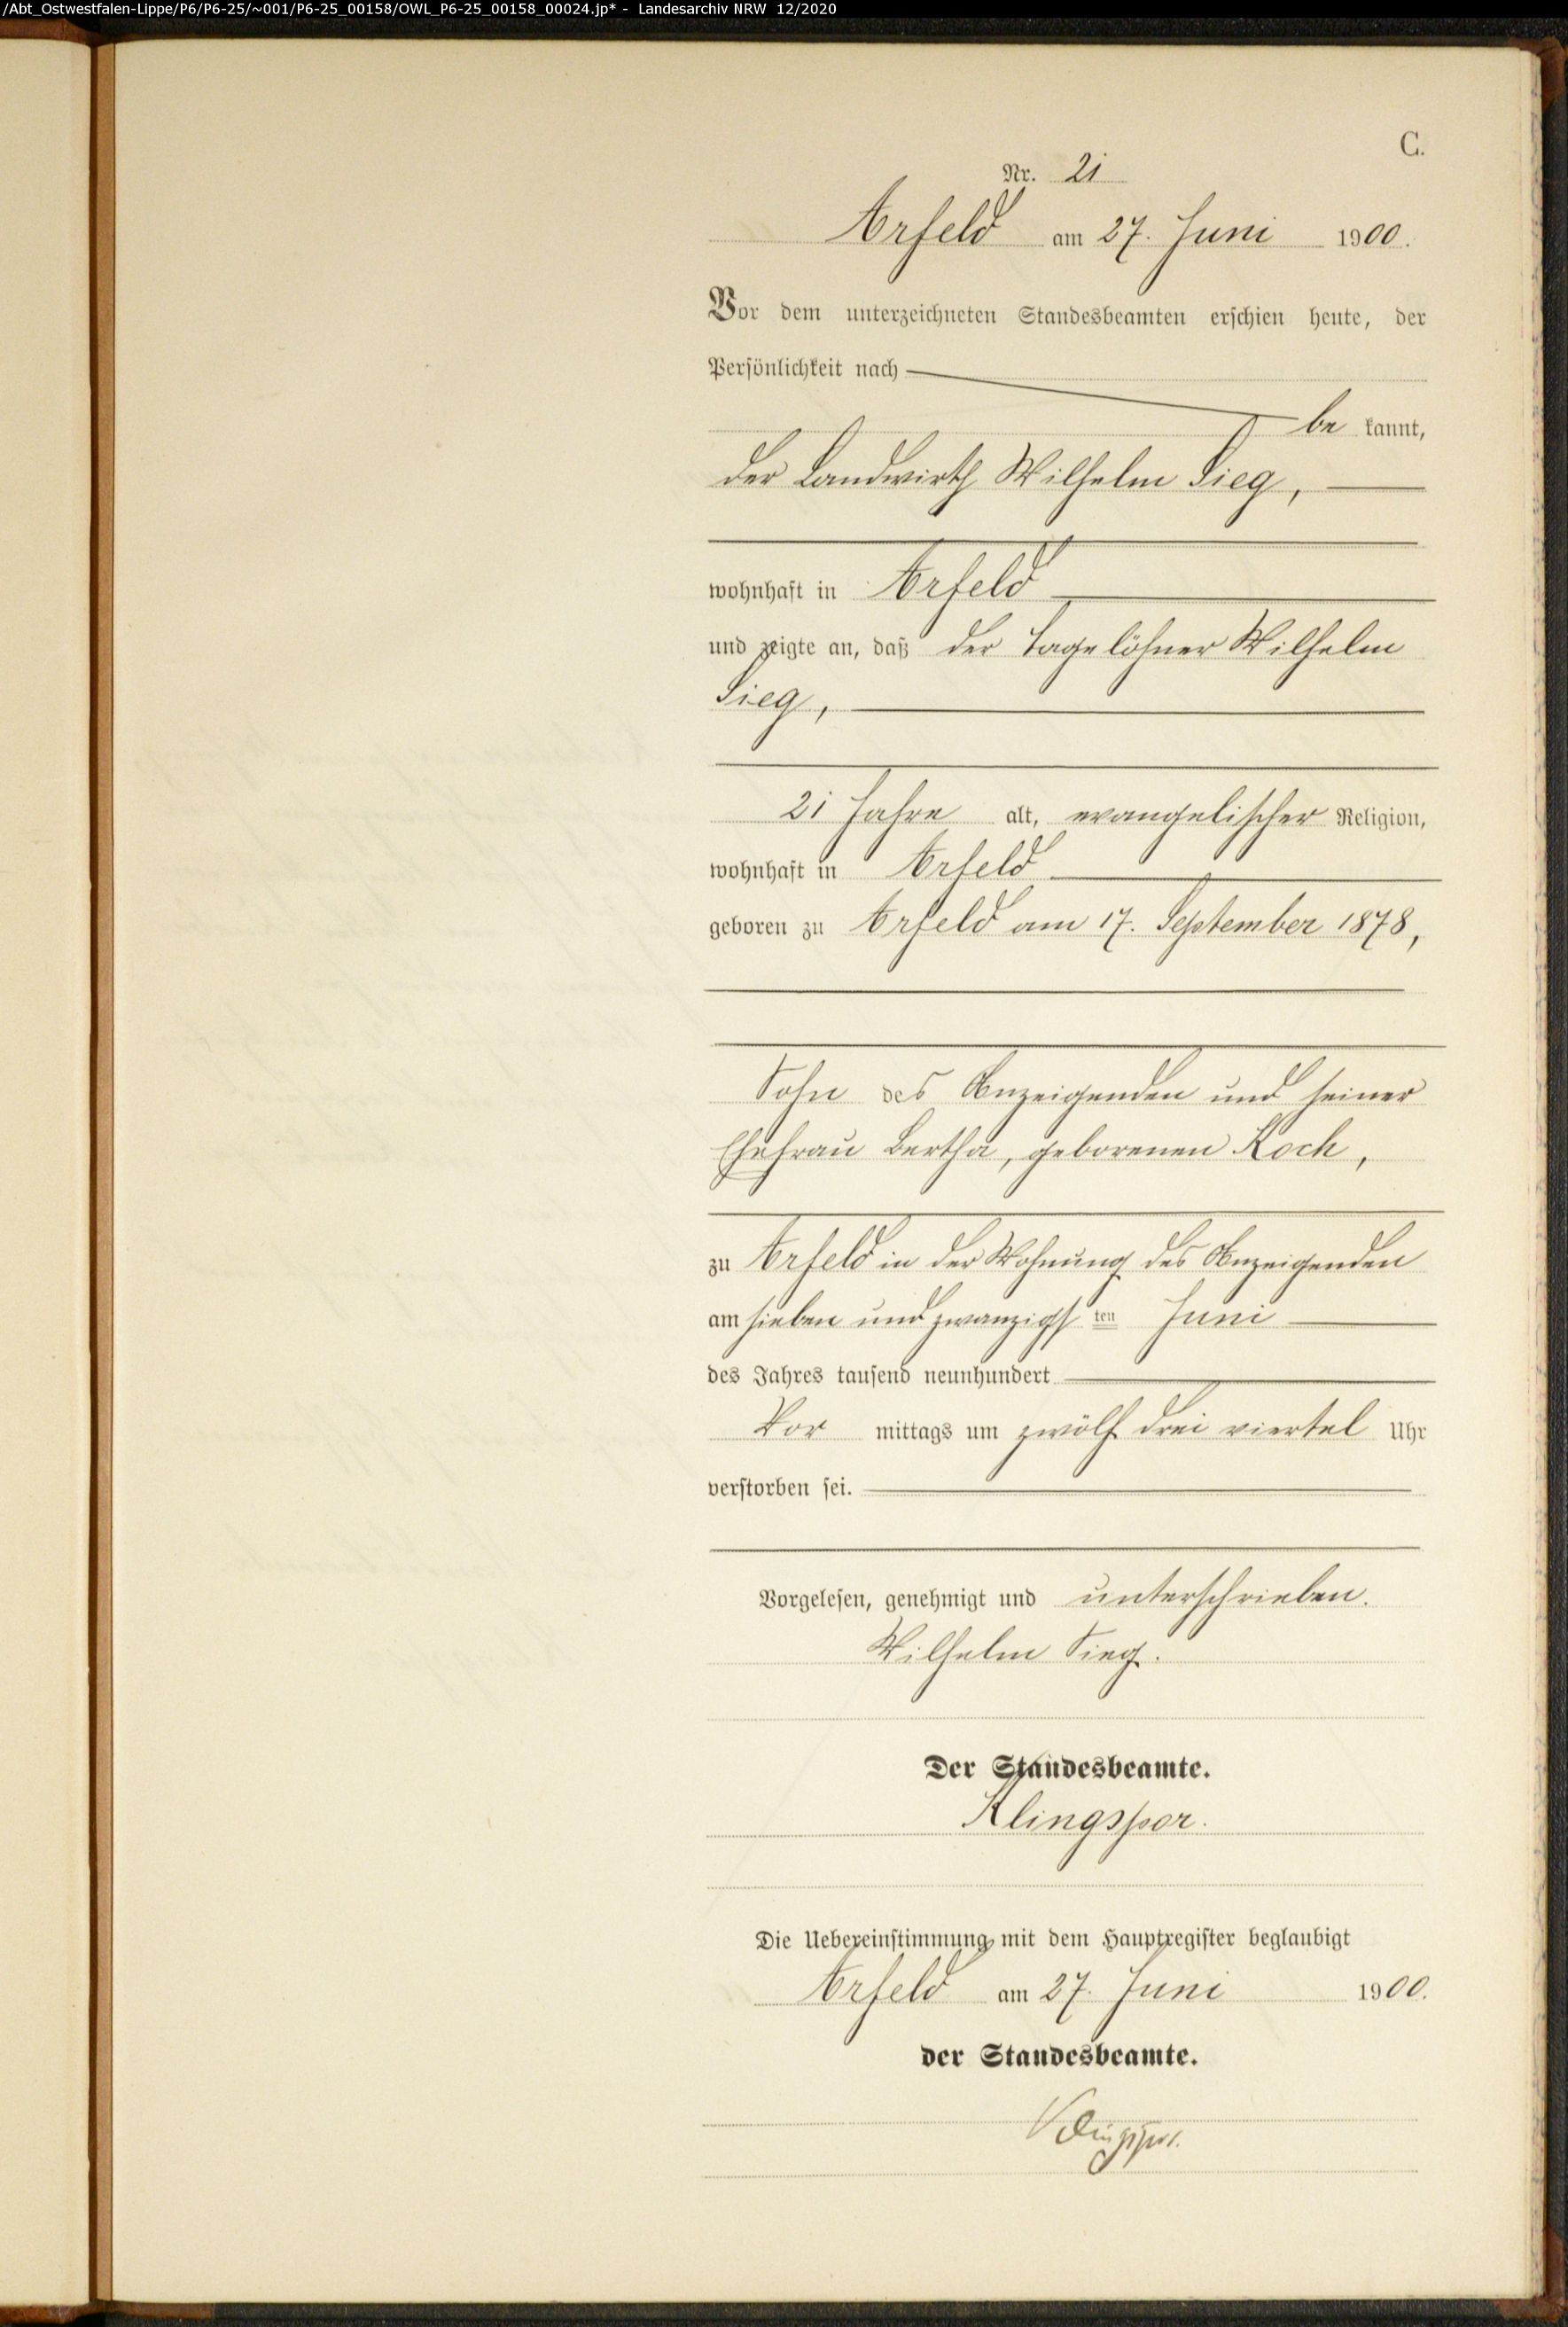 /Abt_Ostwestfalen-Lippe/P6/P6-25/~001/P6-25_00158/OWL_P6-25_00158_00024.jp* - Landesarchiv NRW 12/2020
C.
Nr. 21
Arfeld am 27. Juni 1900.
Vor dem unterzeichneten Standesbeamten erschien heute, der
Persönlichkeit nach
be kannt,
der Landwirth Wilhelm Sieg,
wohnhaft in Arfeld
und zeigte an, daß der Tagelöhner Wilhelm
Sieg,
21 Jahre alt, evangelischer Religion,
wohnhaft in Arfeld
geboren zu Arfeld am 17. September 1878,
Sohn des Anzeigenden und seiner
Ehefrau Bertha, geborenen Koch,
zu Arfeld in der Wohnung des Anzeigenden
am sieben und zwanzigsten Juni
des Jahres tausend neunhundert
Vor mittags um zwölf drei viertel Uhr
verstorben sei.
Vorgelesen, genehmigt und unterschrieben.
Wilhelm Sieg.
Der Standesbeamte.
Klingspor.
Die Uebereinstimmung mit dem Hauptregister beglaubigt
Arfeld am 27. Juni 1900.
der Standesbeamte.
Klingspor.